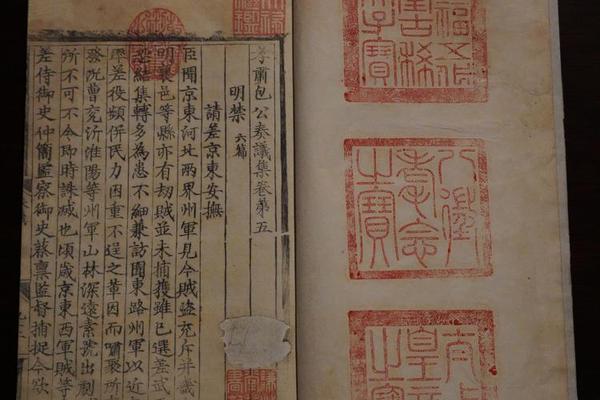 八徵
耄念
之寶
孝肅包公奏議集卷第五
明禁 六篇
請差京東安撫
臣聞京東河北兩界州軍見今賊盜充斥并畿
明襄邑等縣亦有劫賊並未捕獲雖已選差武
恐結集轉多為患不細兼訪聞東路州軍以近
差役頻併民力困重不逞之輩因而嘯聚所
發況曹兗沂淮陽等州軍山林深遠素號出剽
所不可不令即時誅滅也頃歲京東西軍賊等
差侍御史仲簡監察御史蔡稟監督捕捉今欲